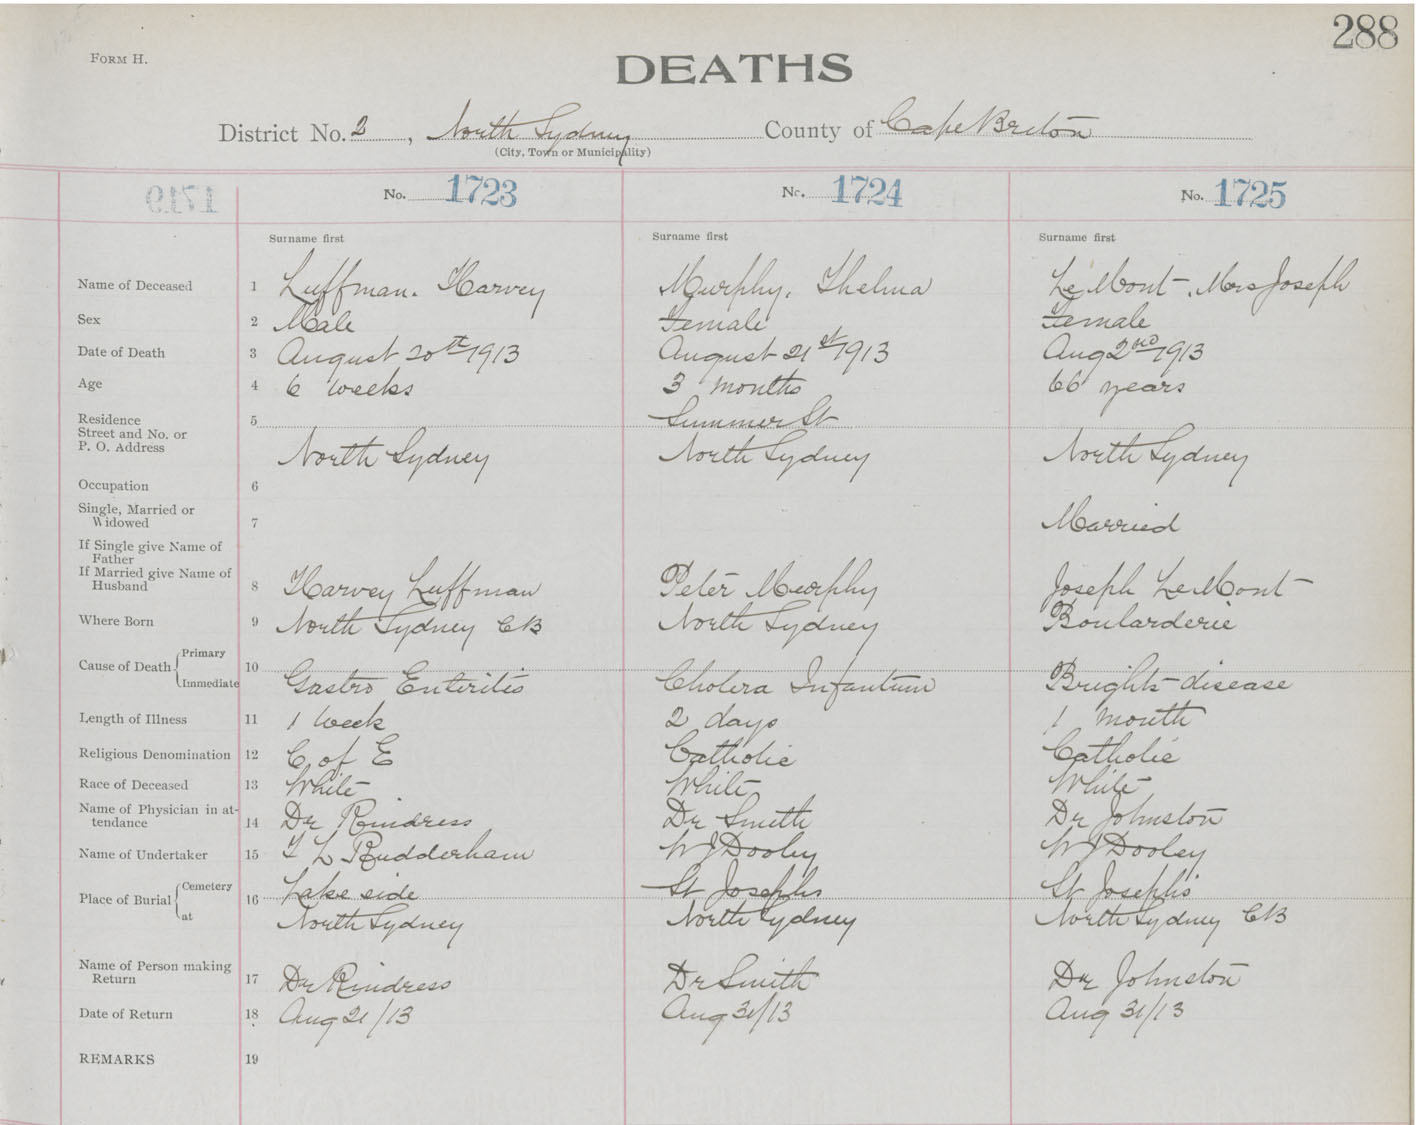 288
FORM H.
DEATHS
District No. 2, North Sydney County of Cape Breton
(City, Town or Municipality)
No. 1723 No. 1724 No. 1725
Surname first Surname first Surname first
Name of Deceased 1 Luffman. Harvey Murphy, Thelma LeMont, Mrs Joseph
Sex 2 Male Female Female
Date of Death 3 August 20th 1913 August 21st 1913 Aug 2nd 1913
Age 4 6 weeks 3 months 66 years
Residence 5 Summer St
Street and No. or
P. O. Address North Sydney North Sydney North Sydney
Occupation 6
Single, Married or
Widowed 7 Married
If Single give Name of
Father
If Married give Name of
Husband 8 Harvey Luffman Peter Murphy Joseph LeMont
Where Born 9 North Sydney CB North Sydney Boularderie
Cause of Death Primary 10
Immediate Gastro Enteritis Cholera Infantum Brights disease
Length of Illness 11 1 week 2 days 1 month
Religious Denomination 12 C of E Catholic Catholic
Race of Deceased 13 White White White
Name of Physician in at-
tendance 14 Dr Rindress Dr Smith Dr Johnston
Name of Undertaker 15 L Rudderham W J Dooley W J Dooley
Place of Burial Cemetery 16 Lake side St Josephs St Josephs
at North Sydney North Sydney North Sydney CB
Name of Person making
Return 17 Dr Rindress Dr Smith Dr Johnston
Date of Return 18 Aug 21/13 Aug 31/13 Aug 31/13
REMARKS 19